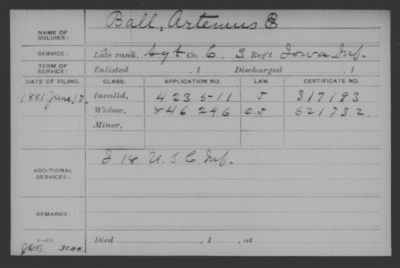 NAME OF SOLDIER: Ball, Artemus B
SERVICE: Late rank, Sgt Co. C, 3 Reg't Iowa Inf.
TERM OF SERVICE: Enlisted , 1 Discharged , 1
DATE OF FILING. CLASS. APPLICATION NO. LAW. CERTIFICATE NO.
1881 June 17, Invalid, 423511 317193
Widow, 846246 621732.
Minor,
ADDITIONAL SERVICES: I 18 U.S.C. Inf.
REMARKS:
Died , 1 , at